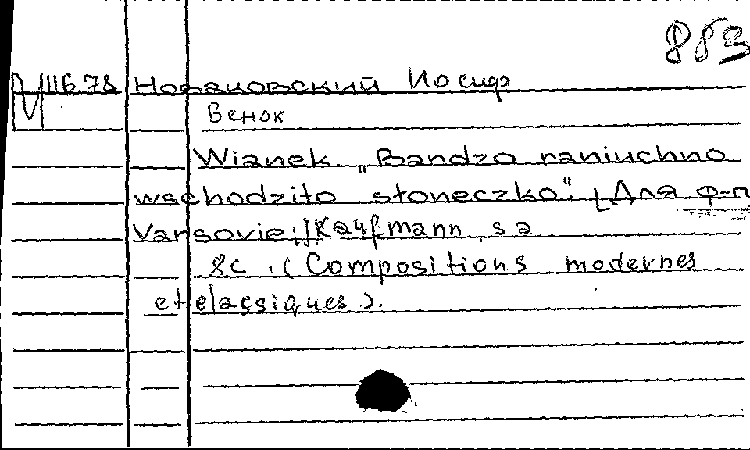 883
N 11678 Новаковский Иосиф
Венок
Wianek. „Bandzo raniuchno
wschodziło słoneczko". [Для ф-п
Varsovie, J Kaufmann, s a
8c. (Compositions modernes
et classiques).